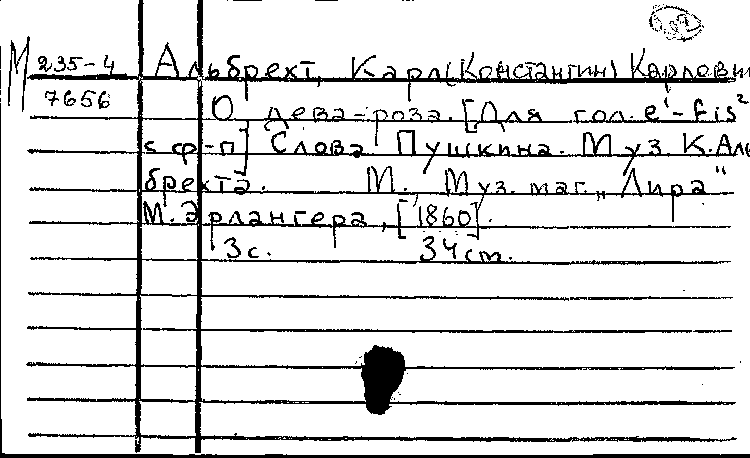 М 235-4 Альбрехт, Карл (Константин) Карлови
7656 О, дева-роза. [Для гол. e¹-fis²
с ф-п] Слова Пушкина. Муз. К. Аль
брехта. М., Муз. маг. „Лира"
М. Эрлангера, [1860].
3 с. 34 ст.